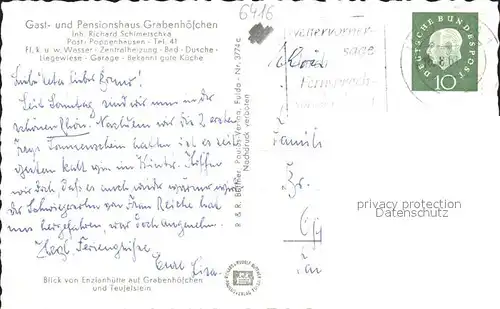 6416
Gast- und Pensionshaus Grabenhöfchen
Inh. Richard Schimetschka
Post: Poppenhausen - Tel. 41
Fl. k. u. w. Wasser - Zentralheizung - Bad - Dusche -
Liegewiese - Garage - Bekannt gute Küche
Liebe
Seit Sonntag sind wir nun in der
schönen Rhön. Nachdem wir die 2 ersten
Tage Sonnenschein hatten ist es seit
gestern kalt wie im Winter. Hoffen
wir doch, daß es auch wieder wärmer wird.
der Schwiegersohn von Frau Reiche hat
uns hergefahren war doch angenehm.
Herzl. Feriengrüße
Eure Lisa.
Blick von Enzianhütte auf Grabenhöfchen
und Teufelstein
R. & R. Büttner, Paulus-Verein, Fulda - Nr. 3774c
Nachdruck verboten
sage
Fernsprech-
DEUTSCHE BUNDESPOST
10
Famili
privacy protection
Datenschutz